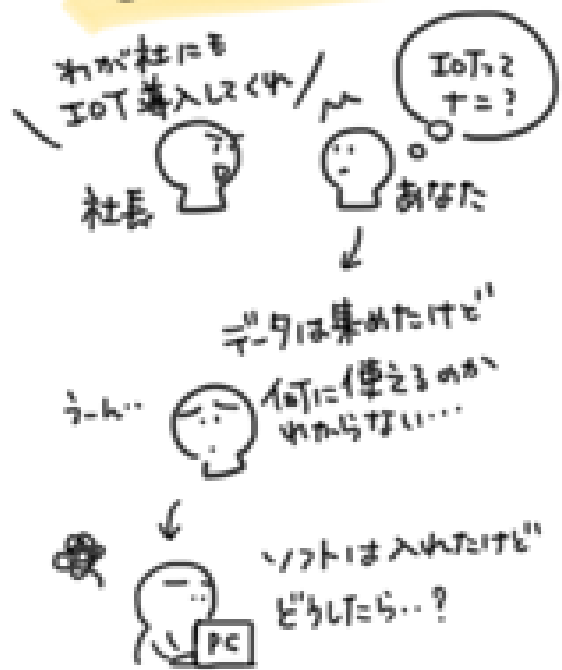 わが社にも
IOT導入してくれ
IOTって
ナニ?
社長
あなた
データは集めたけど
IoTに使えるのか
わからない…
うーん‥
ソフトは入れたけど
どうしたら‥?
PC